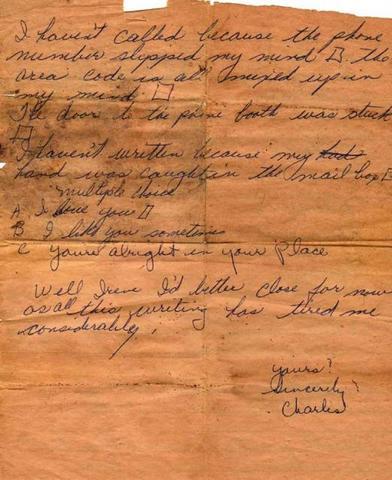 I haven't called because the phone
number slipped my mind □. the
area code is all mixed up in
my mind □
The door to the phone booth was stuck
□
I haven't written because my had
hand was caught in the mail box □
multiple choice
A. I love you □
B I like you sometimes
C You're alright in your place
Well Irene I'd better close for now
as all this writing has tired me
considerably,
yours?
Sincerely?
Charles